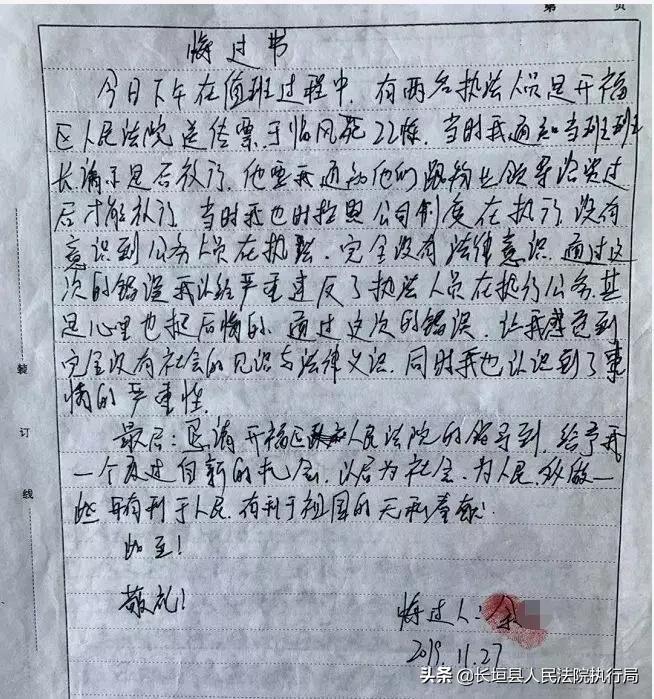 第 页
悔过书
今日下午在值班过程中,有两名执法人员是开福
区人民法院送传票于临风苑22栋,当时我通知当班班
长请示是否放行,他要我通知他们跟物业领导沟通过
后才能放行,当时我也时按照公司制度在执行,没有
意识到公务人员在执法,完全没有法律意识,通过这
次的错误我认给严重违反了执法人员在执行公务,其
是心里也挺后悔的,通过这次的错误,让我感色到
完全没有社会的见识与法律义识,同时我也认识到了事
情的严重性,
最后:恳请开福区人民法院的领导到,给予我
一个改过自新的机会,以后为社会,为人民,多做一
些有利于人民,有利于祖国的无私奉献!
此至!
敬礼!
悔过人:余
2019.11.27
装
订
线
头条 @长垣县人民法院执行局